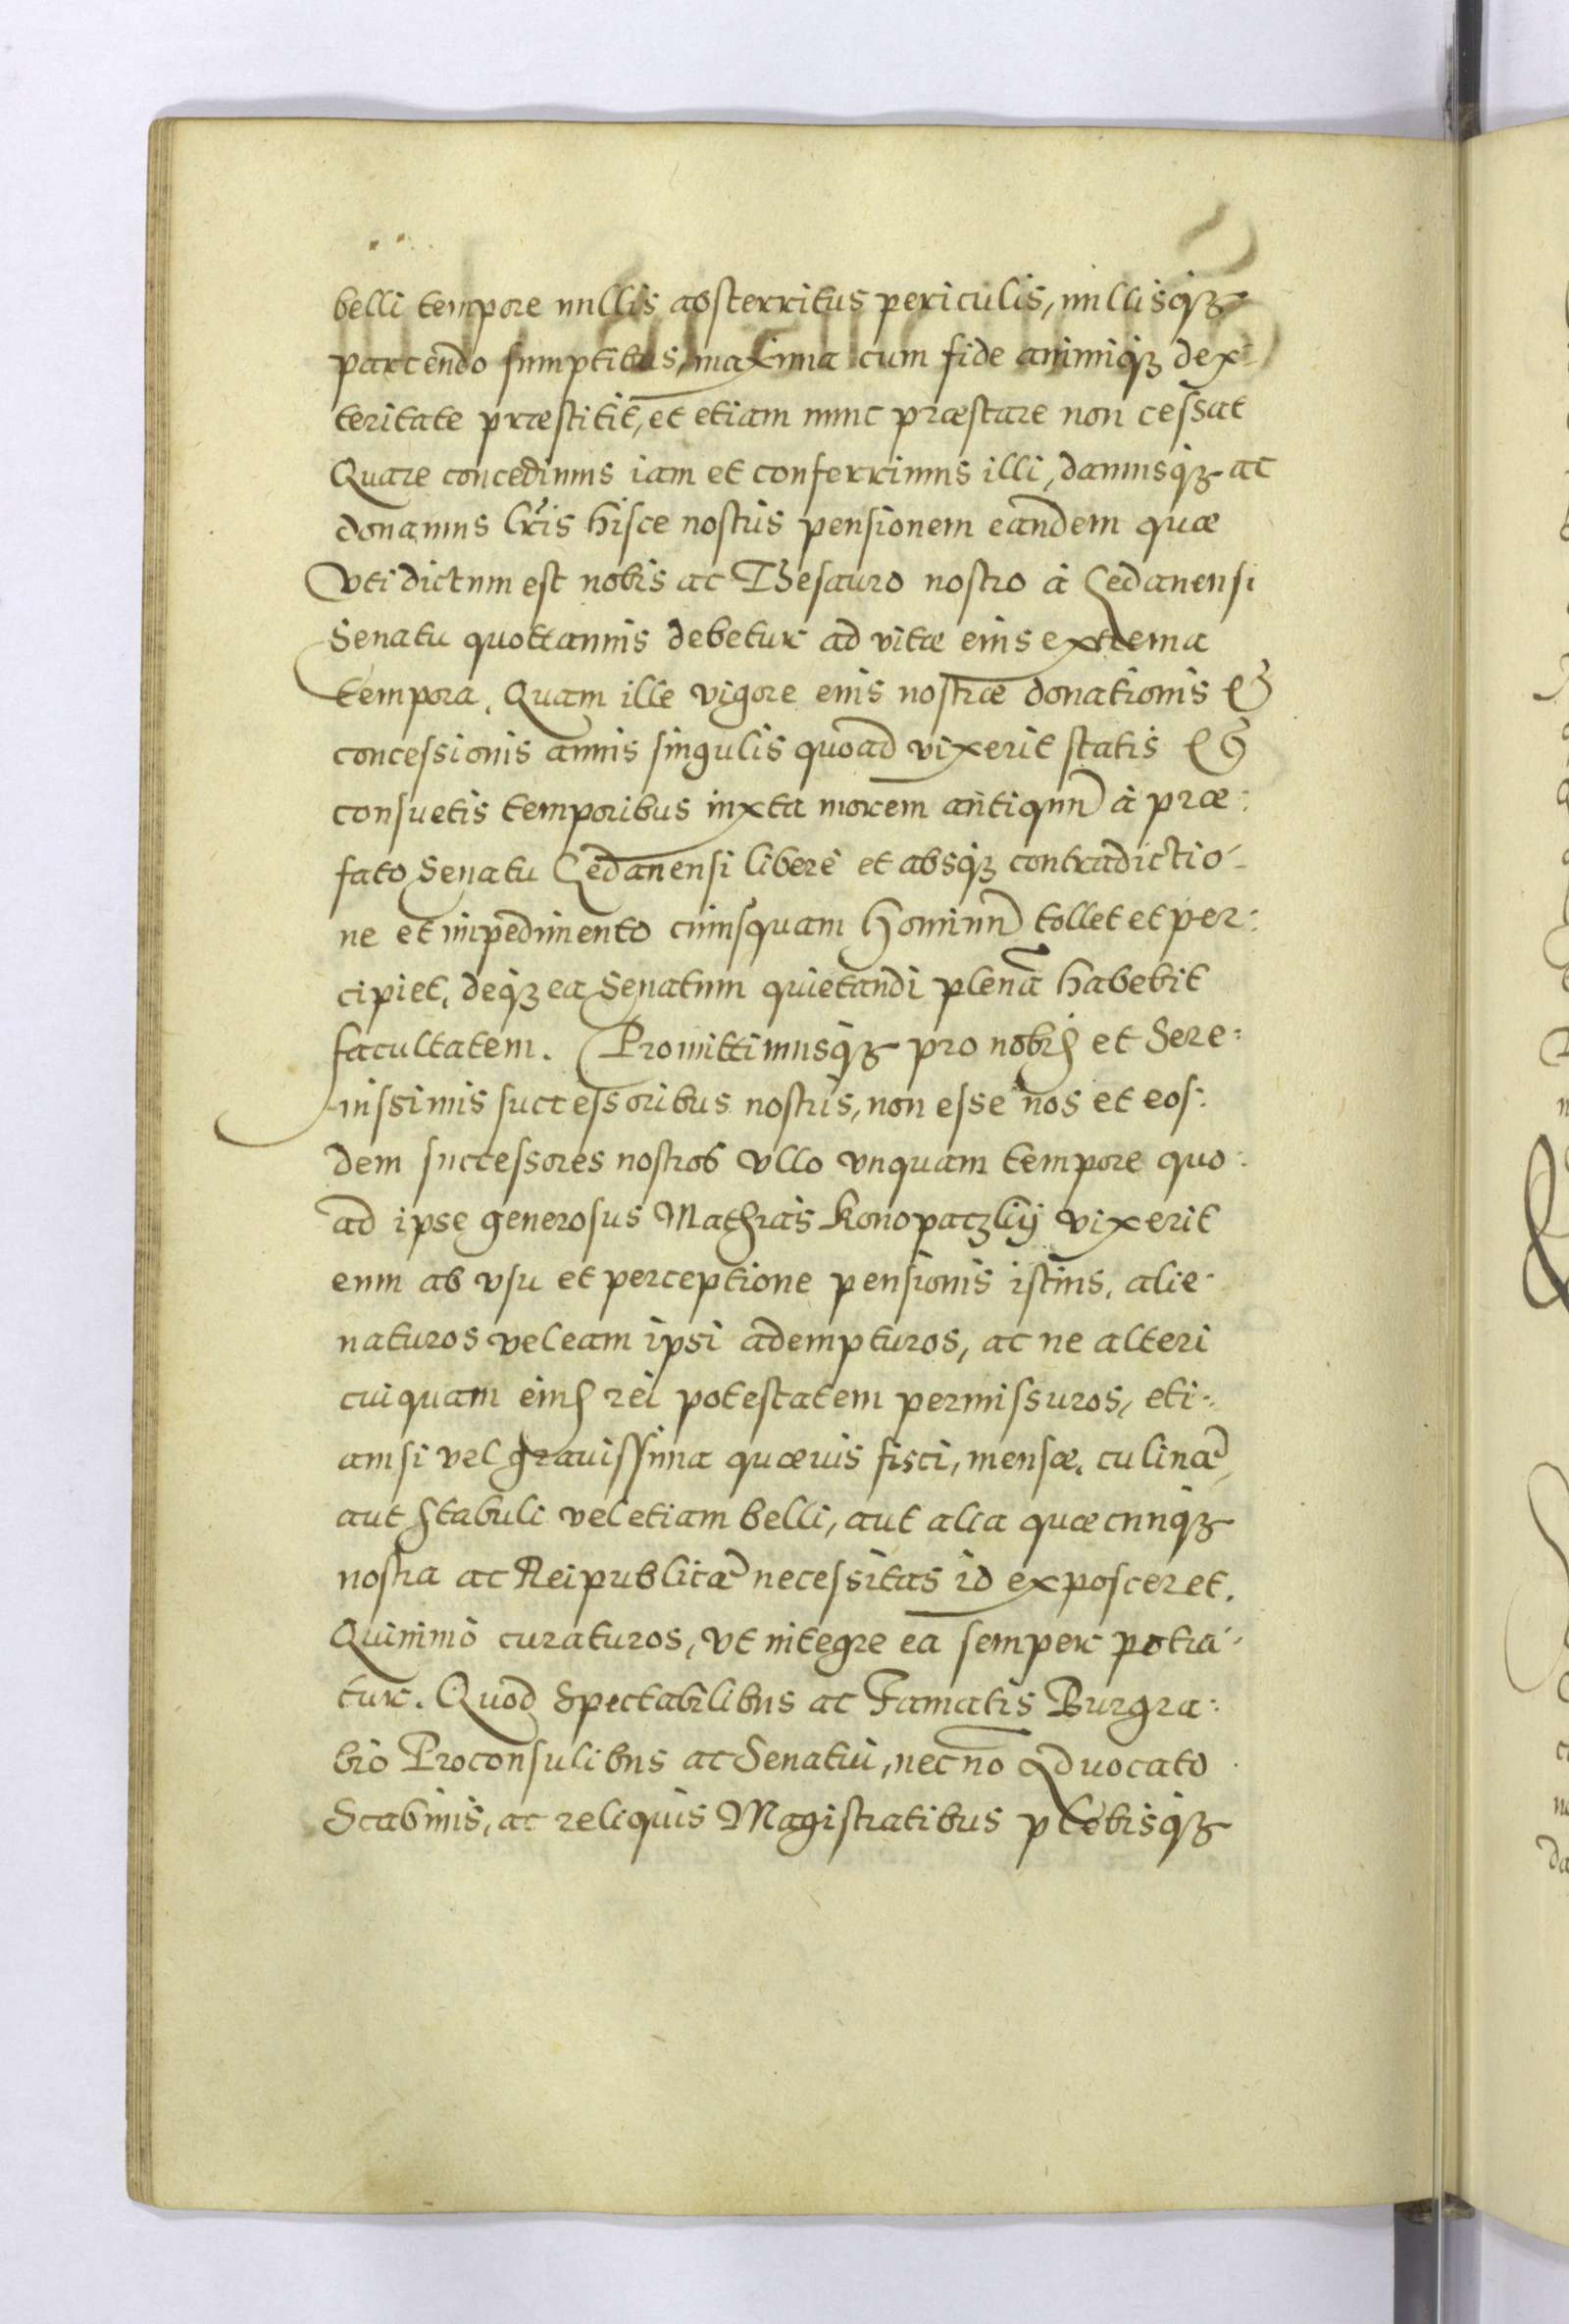 belli tempore nullis absterritus periculis, nullisq3
parcendo sumptibus, maxima cum fide animiq3 dex-
teritate præstitit, et etiam nunc præstare non cessat
Quare concedimus iam et conferrimus illi, damusq3 ac
donamus lr̃is hisce nostris pensionem eandem quæ
vti dictum est nobis ac Thesauro nostro à Gedanensi
Senatu quottannis debetur ad vitæ eius extrema
tempora. Quam ille vigore eius nostræ donationis et
concessionis annis singulis quoad vixerit statis et
consuetis temporibus iuxta morem antiquũ à præ:
fato Senatu Gedanensi liberè et absq3 contradictio-
ne et impedimento cuiusquam hominũ tollet et per:
cipiet, deq3 ea Senatum quietandi plenã habebit
facultatem. Promittimusq3 pro nobis et Sere:
nissimis successoribus nostris, non esse nos et eos:
dem successores nostros vllo vnquam tempore quo:
ad ipse generosus Mathias Konopaczkij vixerit
eum ab vsu et perceptione pensionis istius, alie-
naturos vel eam ipsi adempturos, ac ne alteri
cuiquam eius rei potestatem permissuros, eti-
amsi vel gravissima quæuis fisci, mensæ, culinæ,
aut stabuli vel etiam belli, aut alia quæcunq3
nostra ac Reipublicæ necessitas id exposceret.
Quinimò curaturos, vt integre ea semper potia-
tur. Quod Spectabilibus ac Famatis Burgra:
bio Proconsulibus ac Senatui, nec nõ Aduocato
Scabinis, ac reliquis Magistratibus plebisq3